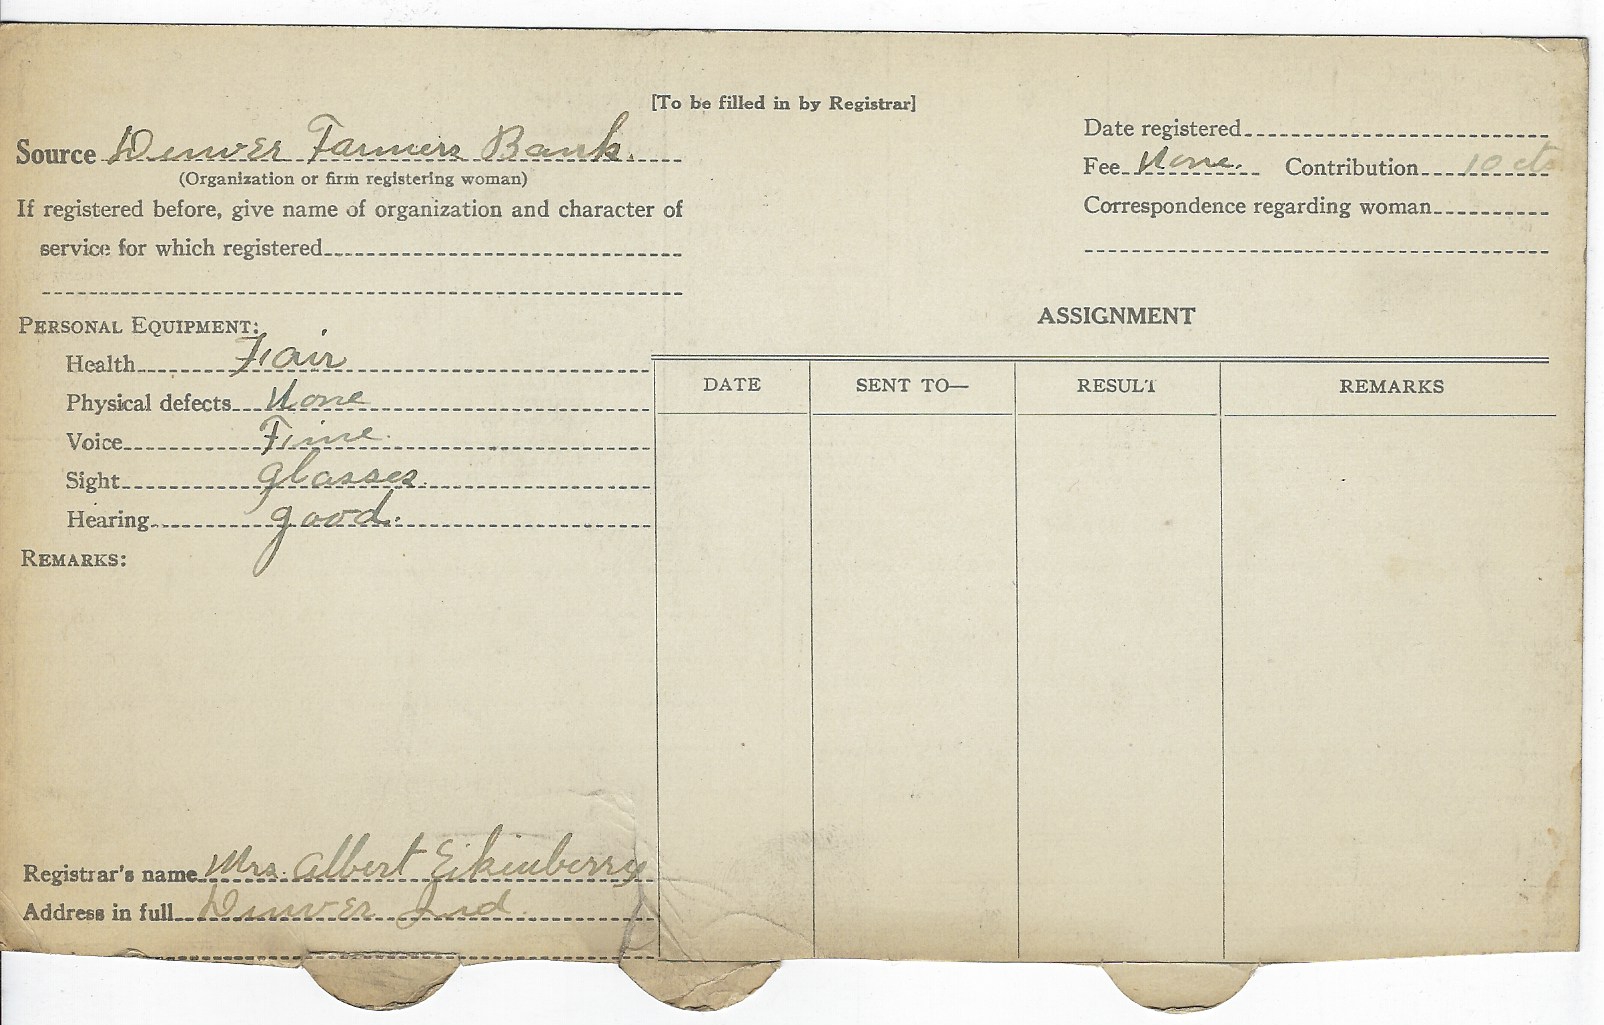 [To be filled in by Registrar]
Source Denver Farmers Bank.
(Organization or firm registering woman)
If registered before, give name of organization and character of
service for which registered
PERSONAL EQUIPMENT:
Health Fair
Physical defects None
Voice Fine
Sight glasses
Hearing good.
REMARKS:
Registrar's name Mrs. Albert Eikenberry
Address in full Denver Ind.
Date registered
Fee None. Contribution 10 cts
Correspondence regarding woman
ASSIGNMENT
DATE SENT TO— RESULT REMARKS